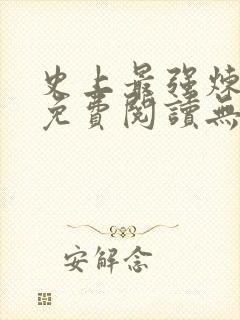 史上最强煉
免費閱讀無
安解念